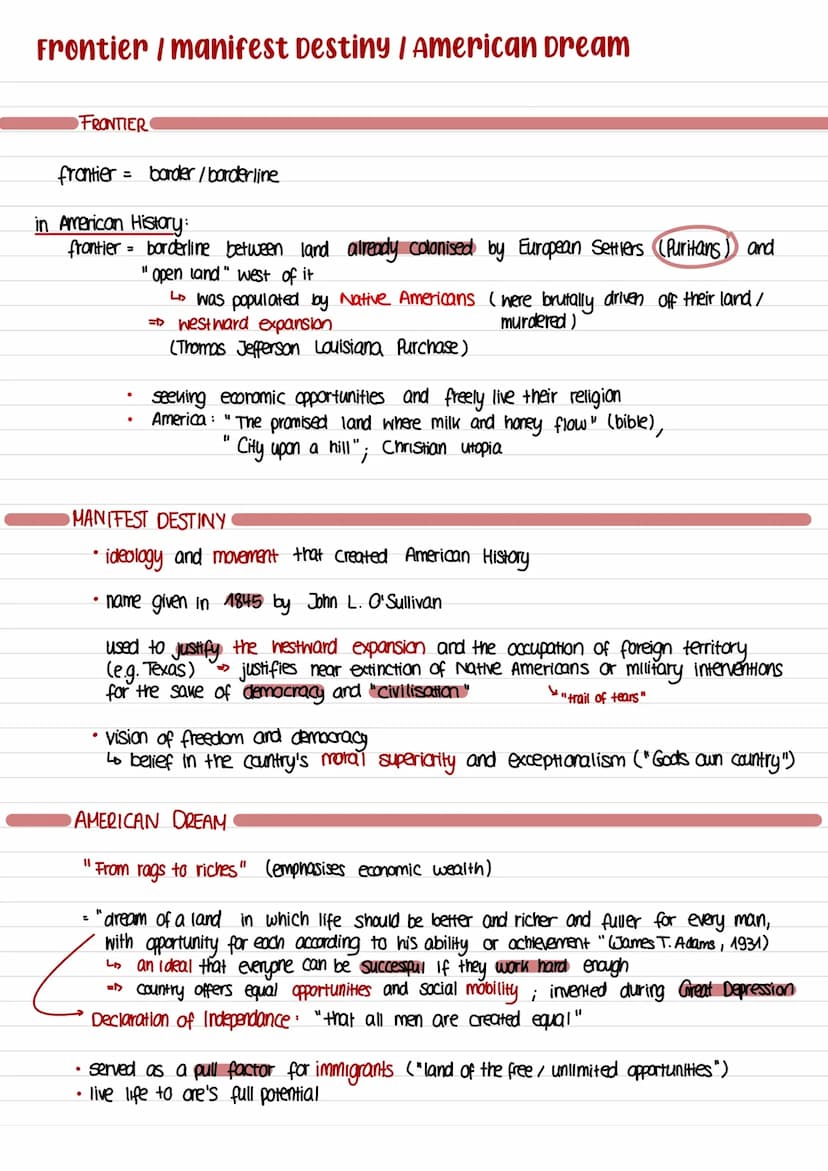 Frontier / manifest Destiny / American Dream
FRONTIER
frontier = border / borderline
in American History:
frontier = borderline between land already colonised by European Settlers (Puritans) and
"open land" west of it
↳ was populated by Native Americans ( were brutally driven off their land /
⇒ westward expansion murdered )
(Thomas Jefferson Louisiana Purchase)
• seeking economic opportunities and freely live their religion
• America: "The promised land where milk and honey flow" (bible),
"City upon a hill"; Christian utopia
MANIFEST DESTINY
• ideology and movement that created American History
• name given in 1845 by John L. O'Sullivan
used to justify the westward expansion and the occupation of foreign territory
(e.g. Texas) ⇒ justifies near extinction of Native Americans or military interventions
for the sake of democracy and "civilisation" ↘ "trail of tears"
• vision of freedom and democracy
↳ belief in the country's moral superiority and exceptionalism ("Gods own country")
AMERICAN DREAM
"From rags to riches" (emphasises economic wealth)
= "dream of a land in which life should be better and richer and fuller for every man,
with opportunity for each according to his ability or achievement" (James T. Adams, 1931)
↳ an ideal that everyone can be successful if they work hard enough
⇒ country offers equal opportunities and social mobility ; invented during Great Depression
Declaration of Independance: "that all men are created equal"
• served as a pull factor for immigrants ("land of the free / unlimited opportunities")
• live life to one's full potential